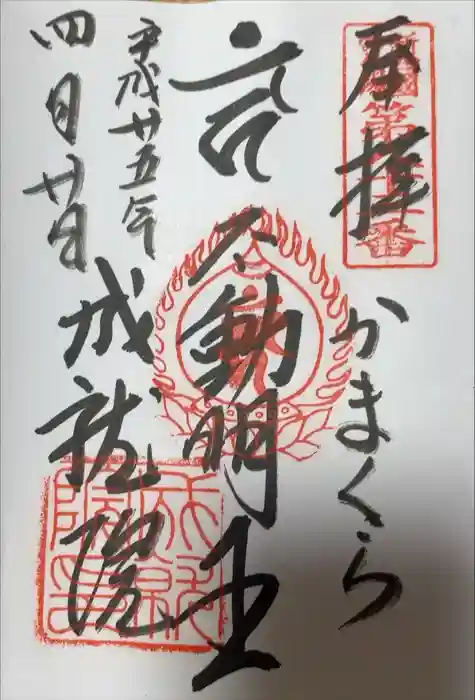 奉拝
かまくら
不動明王
平成廿五年
四月廿日
成就院